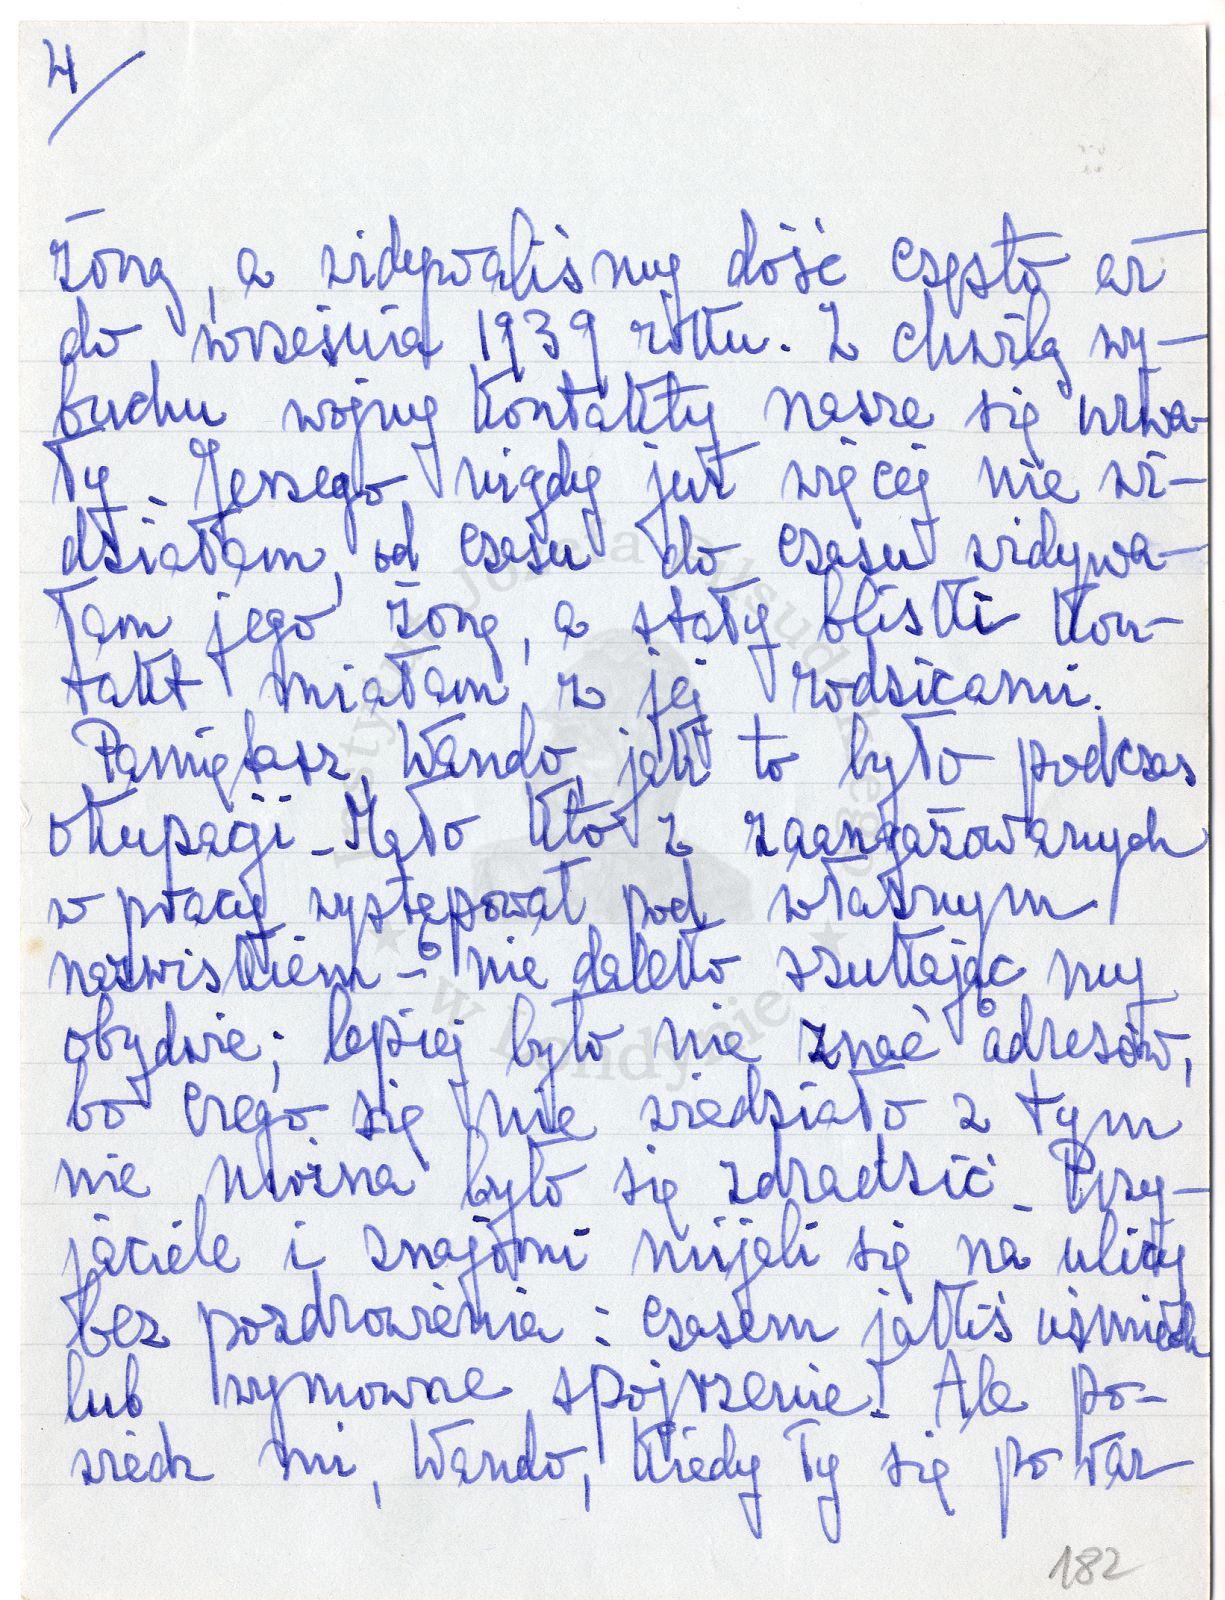 4/
żoną, a widywaliśmy dość często aż
do września 1939 roku. Z chwilą wy-
buchu wojny kontakty nasze się urwa-
ły. Jerzego nigdy już więcej nie wi-
działam, od czasu do czasu widywa-
łam jego żonę, a stały bliski kon-
takt miałam z jej rodzicami.
Pamiętasz, Wando, jak to było podczas
okupacji. Mało kto z zaangażowanych
w pracy występował pod własnym
nazwiskiem - nie daleko szukając my
obydwie; lepiej było nie znać adresów,
bo czego się nie wiedziało z tym
nie można było się zdradzić. Przy-
jaciele i znajomi mijali się na ulicy
bez pozdrowienia: czasem jakiś uśmiech
lub wymowne spojrzenie. Ale po-
wiedz mi, Wando, kiedy Ty się po raz
182
Instytut Józefa Piłsudskiego
★ w Londynie ★